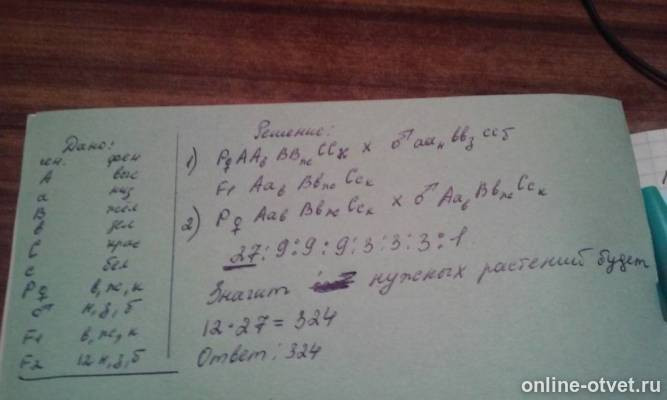 Дано:
ген. фен
А выс
а низ
В жёл
в зел
С крас
с бел
Р♀ в, ж, к
♂ н, з, б
F1 в, ж, к
F2 12 н, з, б
Решение:
1) Р♀ ААв ВВж ССк х ♂ аан ввз ссб
F1 Аав Ввж Сск
2) Р♀ Аав Ввж Сск х ♂ Аав Ввж Сск
27:9:9:9:3:3:3:1
Значит нужных растений будет
12·27=324
Ответ: 324
online-otvet.ru